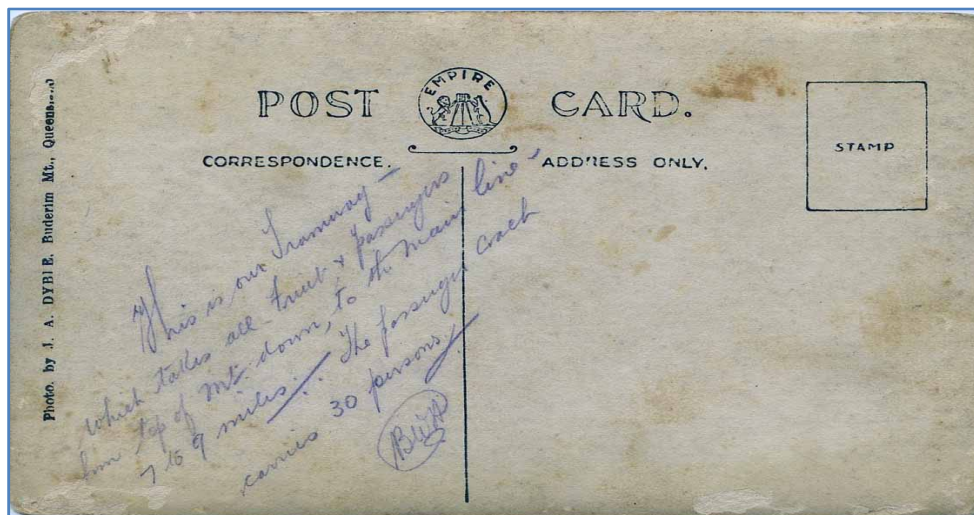 Photo. by J. A. DYBIE. Buderim Mt., Queensland
POST CARD.
EMPIRE
CORRESPONDENCE.
ADDRESS ONLY.
STAMP
This is our Tramway –
which takes all fruit & passengers
from top of Mt. down, to the main line –
7 to 9 miles. The passenger coach
carries 30 persons.
BWA